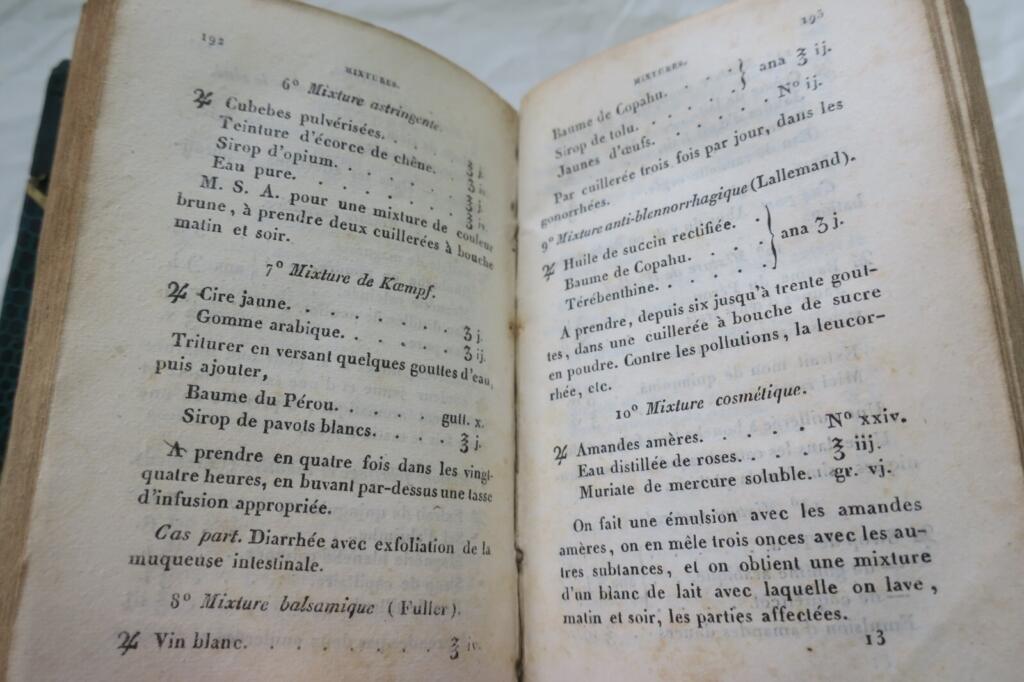 192
MIXTURES.
6° Mixture astringente.
♃ Cubebes pulvérisées. . . . . ʒ j.
Teinture d'écorce de chêne. . ʒ iv.
Sirop d'opium. . . . . . . ʒ j.
Eau pure. . . . . . . . ʒ iv.
M. S. A. pour une mixture de couleur
brune, à prendre deux cuillerées à bouche
matin et soir.
7° Mixture de Kœmpf.
♃ Cire jaune. . . . . . . . ʒ j.
Gomme arabique. . . . . . ʒ ij.
Triturer en versant quelques gouttes d'eau,
puis ajouter,
Baume du Pérou. . . . . gutt. x.
Sirop de pavots blancs. . . . ℥ j.
A prendre en quatre fois dans les vingt-
quatre heures, en buvant par-dessus une tasse
d'infusion appropriée.
Cas part. Diarrhée avec exfoliation de la
muqueuse intestinale.
8° Mixture balsamique (Fuller).
♃ Vin blanc. . . . . . . . ℥ iv.
193
MIXTURES.
Baume de Copahu. . . . } ana ℥ ij.
Sirop de tolu. . . . .
Jaunes d'œufs. . . . . . N° ij.
Par cuillerée trois fois par jour, dans les
gonorrhées.
9° Mixture anti-blennorrhagique (Lallemand).
♃ Huile de succin rectifiée. . } ana ʒ j.
Baume de Copahu. . . .
Térébenthine. . . . . .
A prendre, depuis six jusqu'à trente gout-
tes, dans une cuillerée à bouche de sucre
en poudre. Contre les pollutions, la leucor-
rhée, etc.
10° Mixture cosmétique.
♃ Amandes amères. . . . . N° xxiv.
Eau distillée de roses. . . . ℥ iij.
Muriate de mercure soluble. gr. vj.
On fait une émulsion avec les amandes
amères, on en mêle trois onces avec les au-
tres subtances, et on obtient une mixture
d'un blanc de lait avec laquelle on lave,
matin et soir, les parties affectées.
13